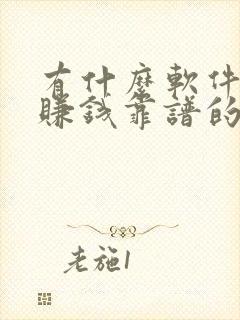 有什麽軟件
賺錢靠譜的
老施1